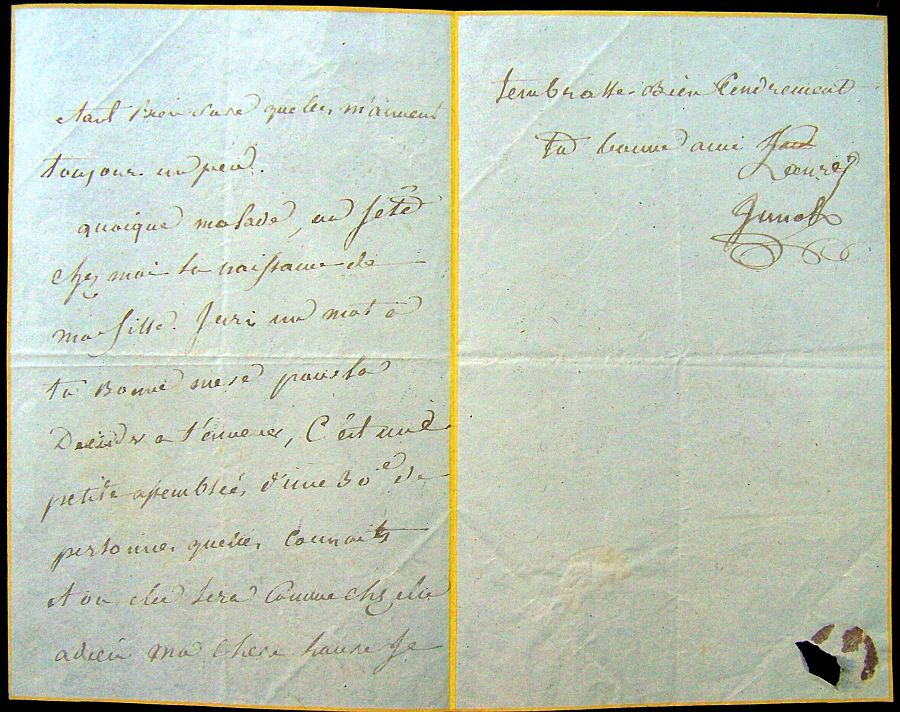 étant bien sure quelles m'aiment
toujours un peu.
quoique malade, on fête
chez moi la naissance de
ma fille. J'écris un mot à
ta bonne mere pour la
Decider a t'amener, C'est une
petite assemblée, d'une 30e de
personnes quelles connait
et ou elle sera Comme chez elle
adieu ma chere Laure Je
t'embrasse Bien tendrement
ta bonne amie
Laure
Junot